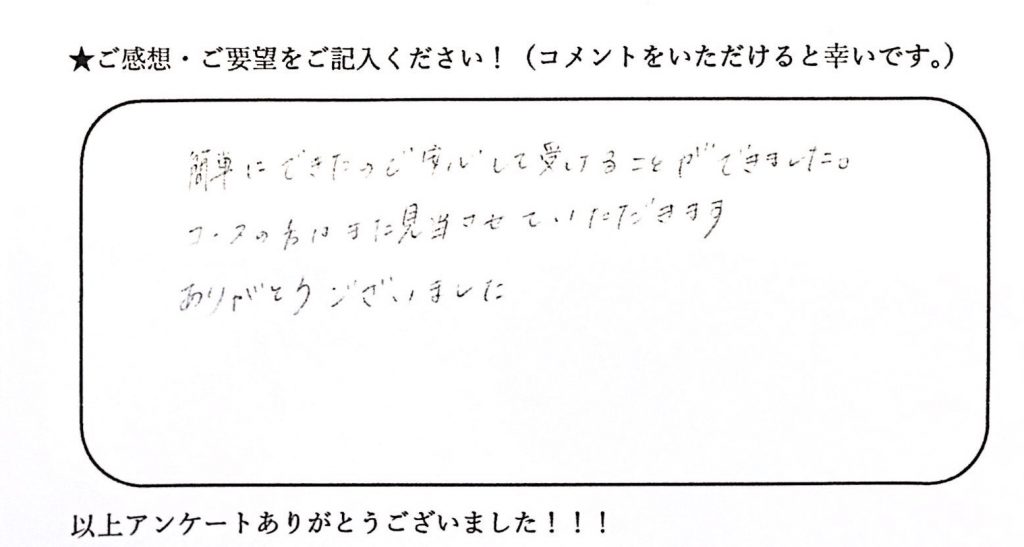 ★ご感想・ご要望をご記入ください！（コメントをいただけると幸いです。）
簡単にできたので安心して受けることができました。
コースの方はまた見当させていただきます
ありがとうございました
以上アンケートありがとうございました！！！